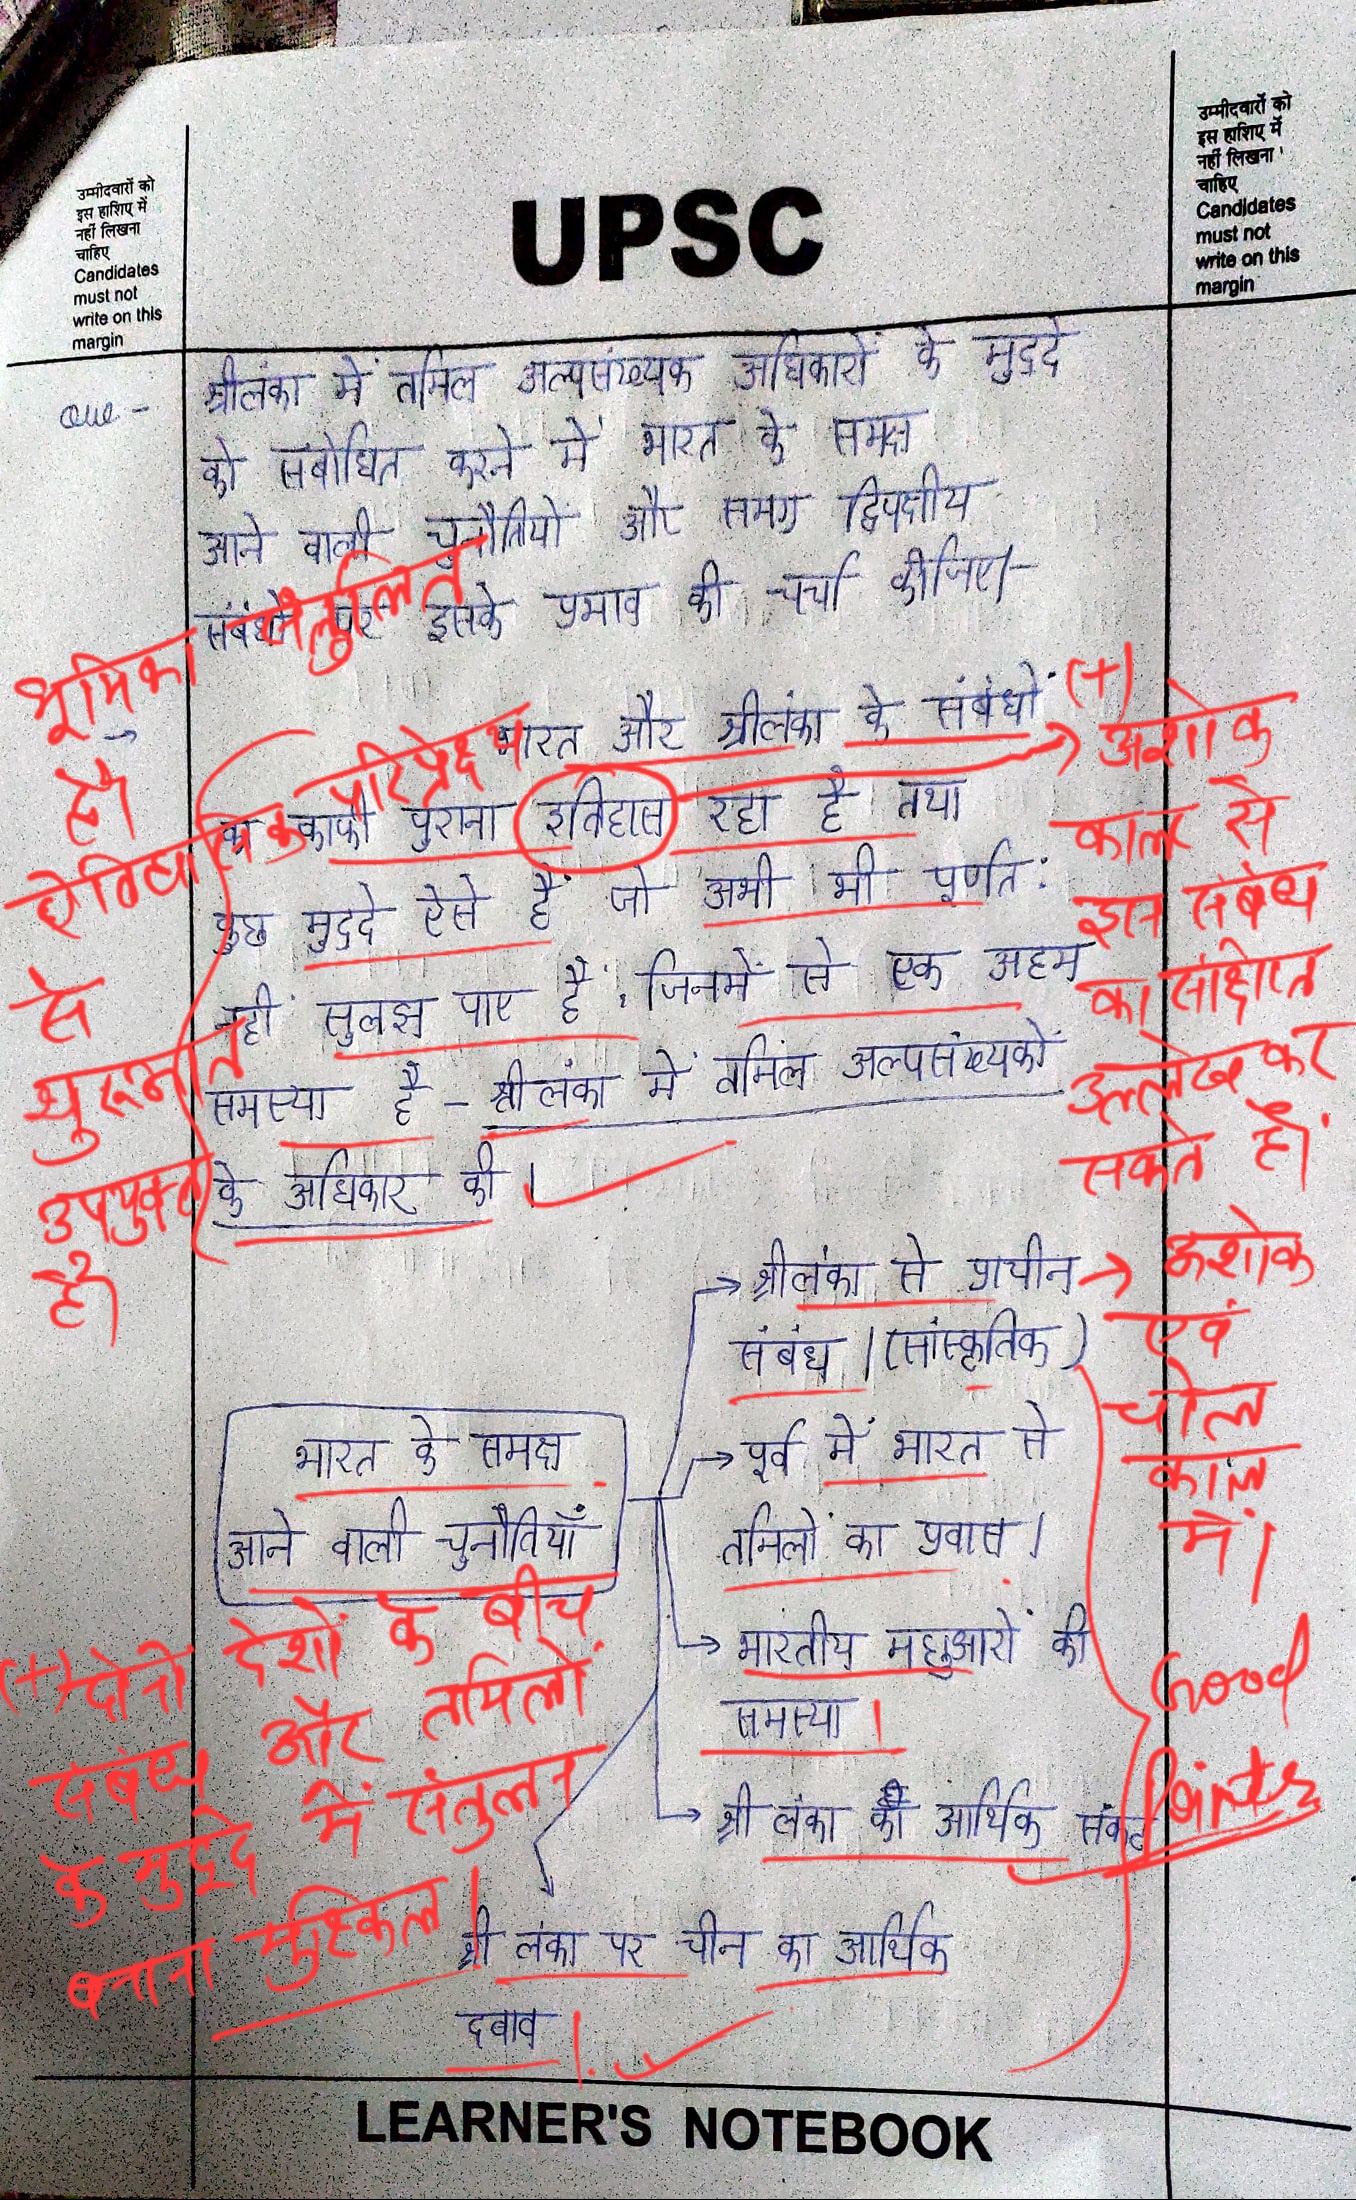 उम्मीदवारों को
इस हाशिए में
नहीं लिखना
चाहिए
Candidates
must not
write on this
margin
UPSC
उम्मीदवारों को
इस हाशिए में
नहीं लिखना
चाहिए
Candidates
must not
write on this
margin
श्रीलंका में तमिल अल्पसंख्यक अधिकारों के मुद्दे
को संबोधित करने में भारत के समक्ष
आने वाली चुनौतियों और समग्र द्विपक्षीय
संबंधों पर इसके प्रभाव की चर्चा कीजिए।-
भूमिका संतुलित
है।
ऐतिहासिक परिप्रेक्ष
से
शुरूआत
उपयुक्त
है।
भारत और श्रीलंका के संबंधों
का काफी पुराना इतिहास रहा है तथा
कुछ मुद्दे ऐसे हैं जो अभी भी पूर्णत:
नहीं सुलझ पाए हैं, जिनमें से एक अहम
समस्या है - श्रीलंका में तमिल अल्पसंख्यकों
के अधिकार की।
(+)
अशोक
काल से
इस संबंध
का संक्षिप्त
उल्लेख कर
सकते हैं।
भारत के समक्ष
आने वाली चुनौतियाँ
→ श्रीलंका से प्राचीन
संबंध। (सांस्कृतिक)
→ पूर्व में भारत से
तमिलों का प्रवास।
→ भारतीय मछुआरों की
समस्या।
→ श्री लंका की आर्थिक संकट
श्री लंका पर चीन का आर्थिक
दबाव।
→ अशोक
एवं
चोल
काल
में।
Good
Points
(+) दोनों देशों के बीच
संबंध और तमिलों
के मुद्दे में संतुलन
बनाना मुश्किल।
LEARNER'S NOTEBOOK